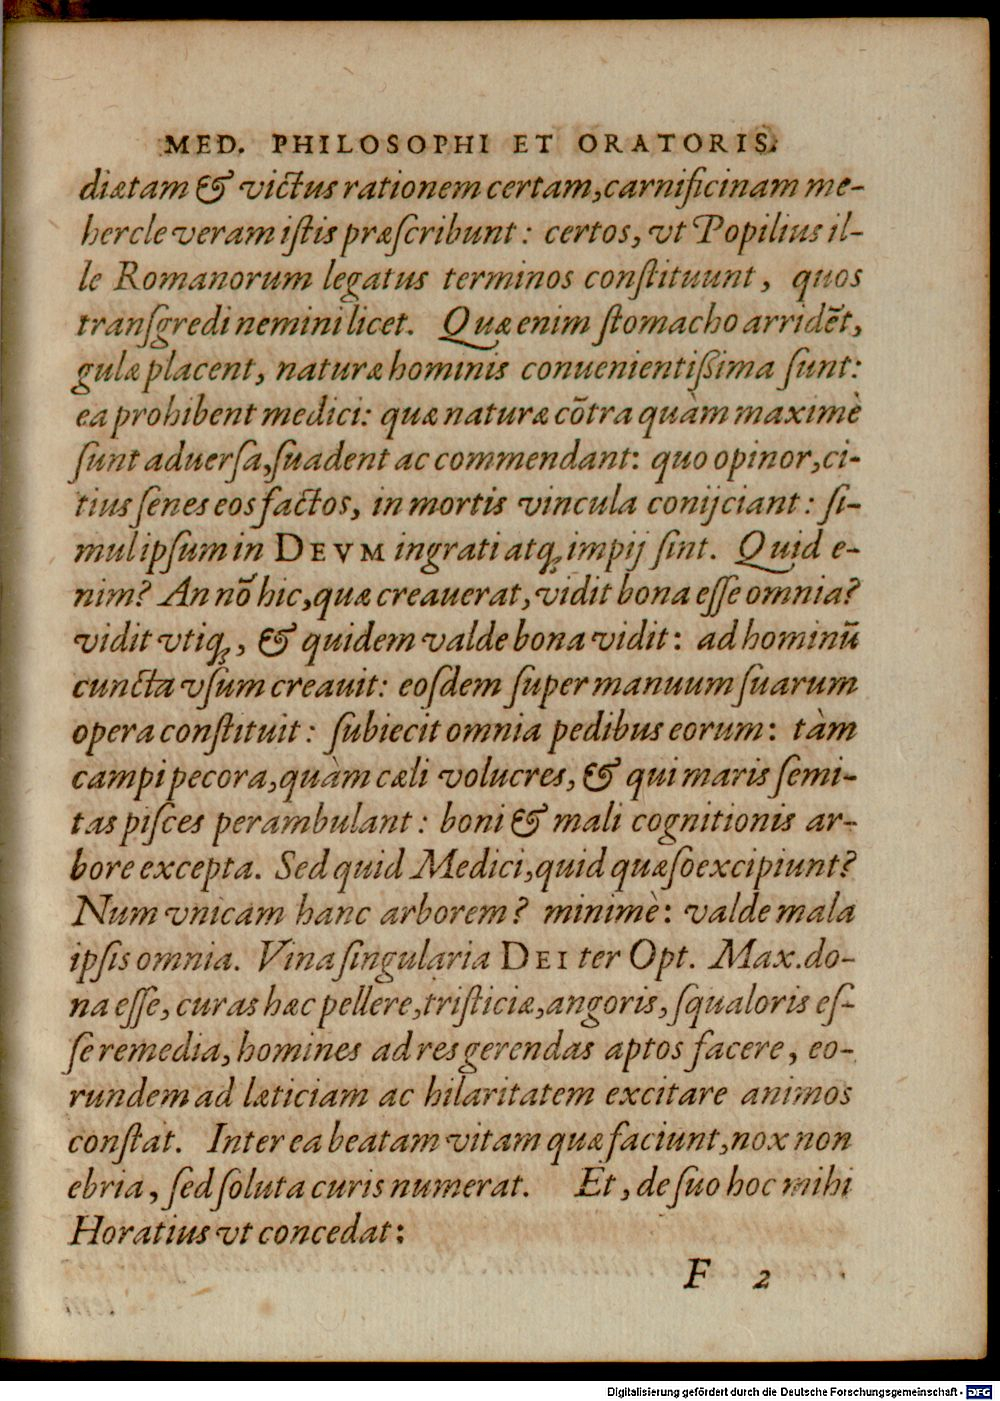 MED. PHILOSOPHI ET ORATORIS.
diætam & victus rationem certam, carnificinam me-
hercle veram iſtis præſcribunt: certos, vt Popilius il-
le Romanorum legatus terminos conſtituunt, quos
tranſgredi nemini licet. Quæ enim ſtomacho arridēt,
gulæ placent, naturæ hominis conuenientißima ſunt:
ea prohibent medici: quæ naturæ cōtra quàm maximè
ſunt aduerſa, ſuadent ac commendant: quo opinor, ci-
tius ſenes eos factos, in mortis vincula conijciant: ſi-
mul ipſum in DEVM ingrati atq; impij ſint. Quid e-
nim? An nō hic, quæ creauerat, vidit bona eſſe omnia?
vidit vtiq;, & quidem valde bona vidit: ad hominū
cuncta vſum creauit: eoſdem ſuper manuum ſuarum
opera conſtituit: ſubiecit omnia pedibus eorum: tàm
campi pecora, quàm cæli volucres, & qui maris ſemi-
tas piſces perambulant: boni & mali cognitionis ar-
bore excepta. Sed quid Medici, quid quæſo excipiunt?
Num vnicam hanc arborem? minimè: valde mala
ipſis omnia. Vina ſingularia DEI ter Opt. Max. do-
na eſſe, curas hæc pellere, triſticiæ, angoris, ſqualoris eſ-
ſe remedia, homines ad res gerendas aptos facere, eo-
rundem ad læticiam ac hilaritatem excitare animos
conſtat. Inter ea beatam vitam quæ faciunt, nox non
ebria, ſed ſoluta curis numerat. Et, de ſuo hoc mihi
Horatius vt concedat:
F 2
Digitalisierung gefördert durch die Deutsche Forschungsgemeinschaft - DFG